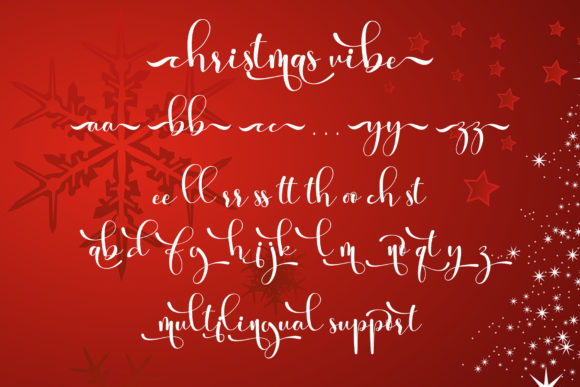 christmas vibe
aa bb cc ... yy zz
ee ll rr ss tt th oo ch st
ab d f g h ij k l m no q t y z
multilingual support